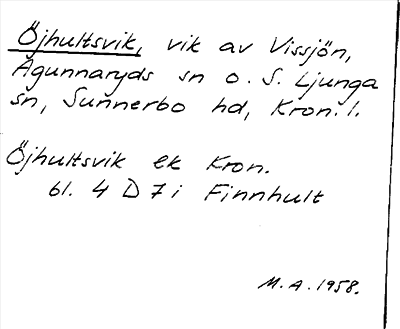 Öjhultsvik, vik av Vissjön,
Agunnaryds sn o. S. Ljunga
sn, Sunnerbo hd, Kron. l.
Öjhultsvik ek Kron.
bl. 4 D 7 i Finnhult
M.A. 1958.